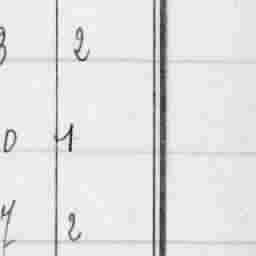 3 2
0 1
7 2